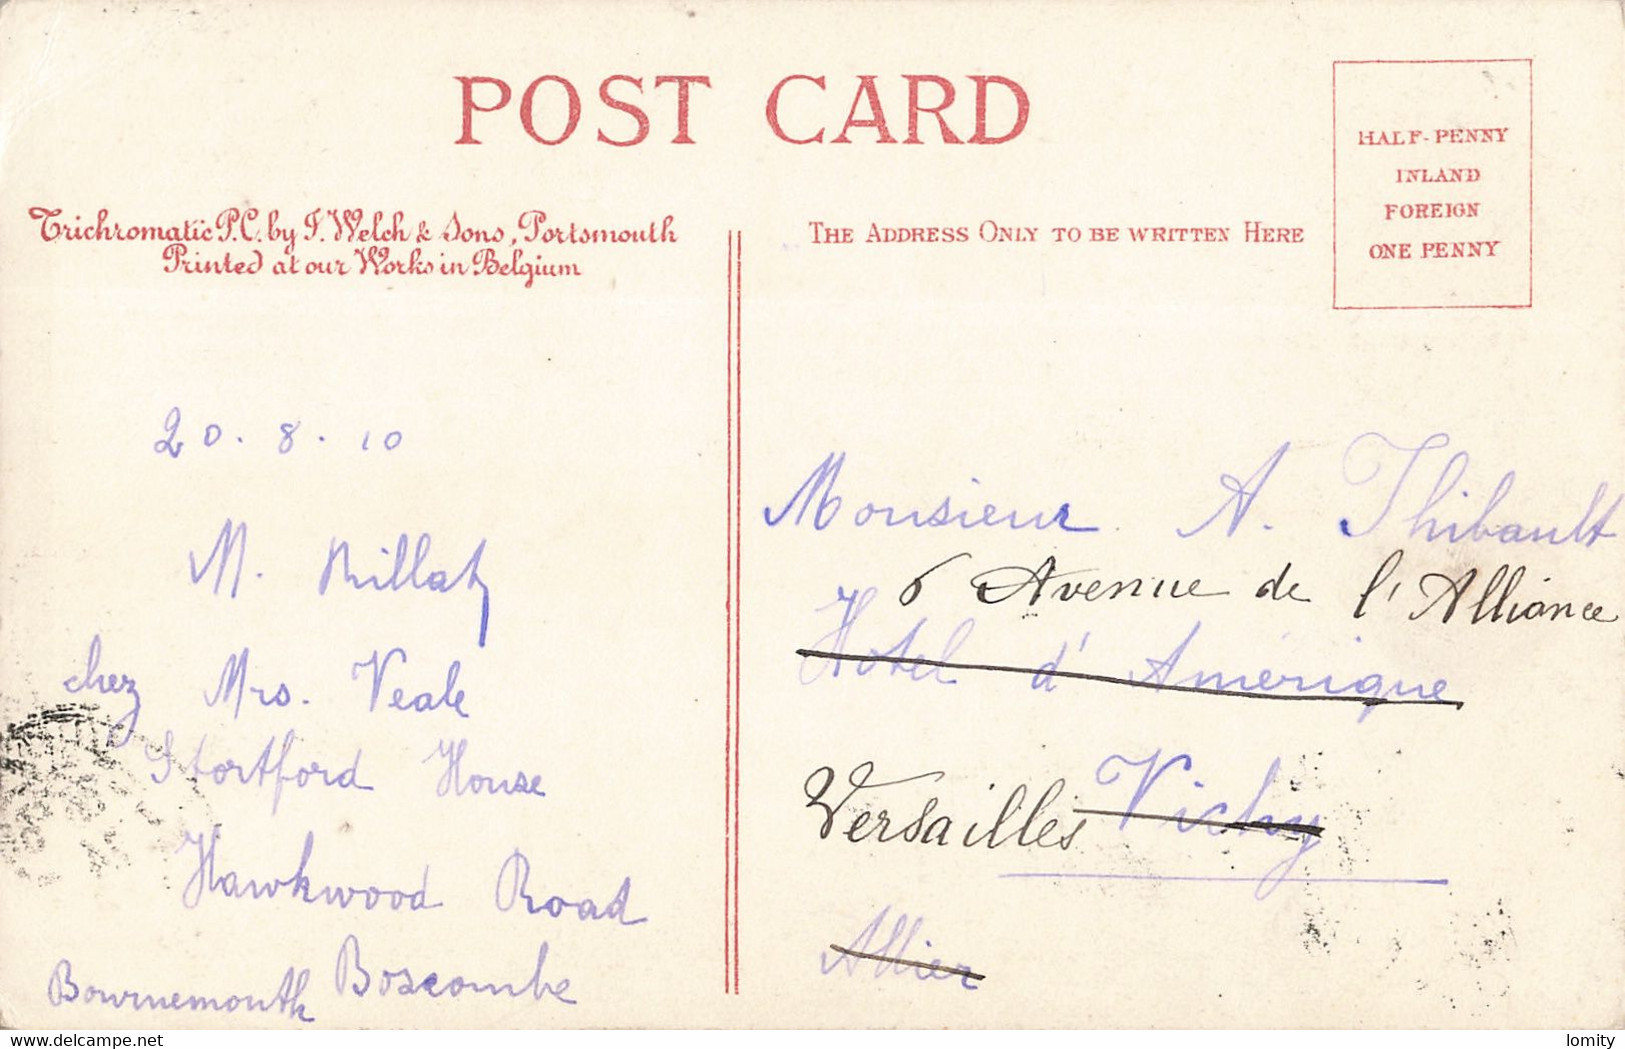 POST CARD
HALF-PENNY
INLAND
FOREIGN
ONE PENNY
Trichromatic P.C. by F. Welch & Sons, Portsmouth
Printed at our Works in Belgium
THE ADDRESS ONLY TO BE WRITTEN HERE
20.8.10
M. Rillat
chez Mrs. Veale
Stortford House
Hawkwood Road
Boscombe
Bournemouth
Monsieur A. Thibault
6 Avenue de l'Alliance
Hotel d'Amérique
Versailles Vichy
Allier
delcampe.net
lomity